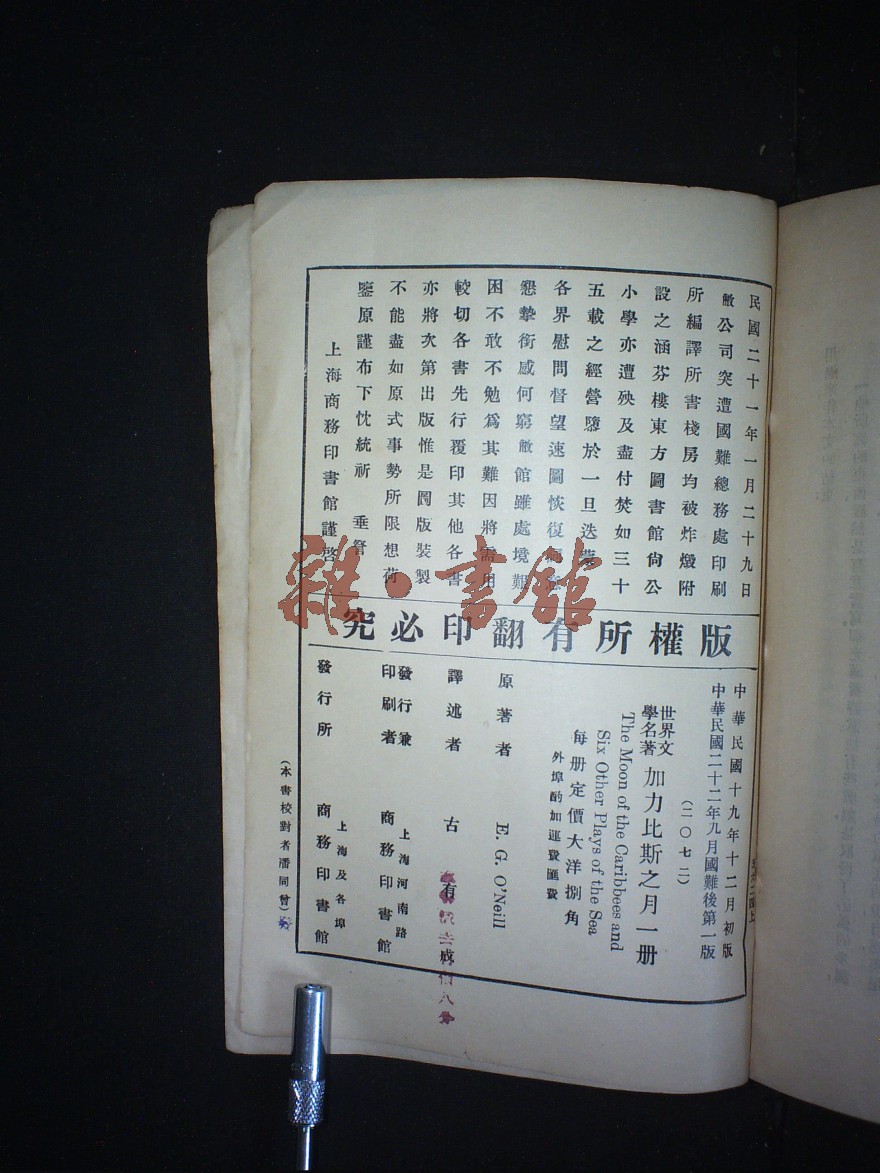 民國二十一年一月二十九日
敝公司突遭國難總務處印刷
所編譯所書棧房均被炸燬附
設之涵芬樓東方圖書館尙公
小學亦遭殃及盡付焚如三十
五載之經營隳於一旦迭蒙
各界慰問督望速圖恢復詞意
懇摯銜感何窮敝館雖處境艱
困不敢不勉爲其難因將需用
較切各書先行覆印其他各書
亦將次第出版惟是圖版裝製
不能盡如原式事勢所限想荷
鑒原謹布下忱統祈 垂詧
上海商務印書館謹啓
版權所有翻印必究
中華民國十九年十二月初版
中華民國二十二年九月國難後第一版
(二〇七二)
世界文學名著 加力比斯之月一册
The Moon of the Caribbees and
Six Other Plays of the Sea
每册定價大洋捌角
外埠酌加運費匯費
原著者 E. G. O'Neill
譯述者 古有成
發行兼印刷者 上海河南路 商務印書館
發行所 上海及各埠 商務印書館
(本書校對者潘同曾)
雜·書館